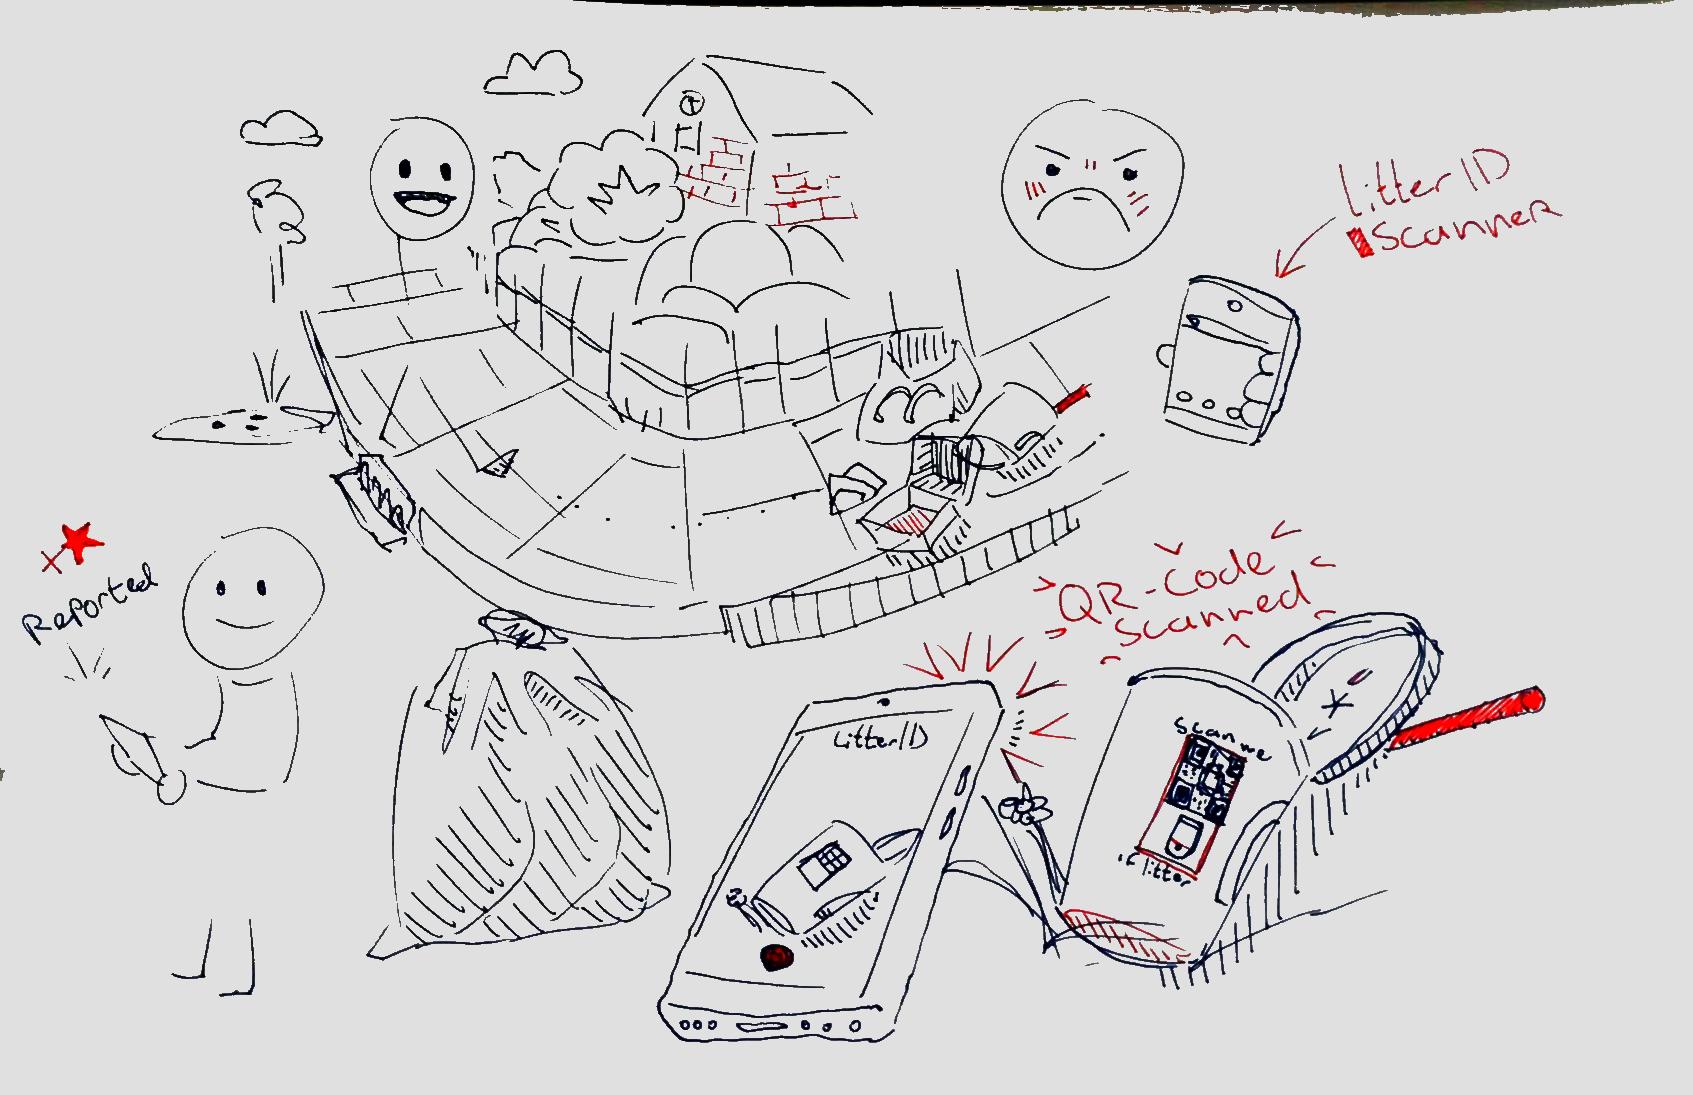 LitterID
Scanner
Reported
QR-Code
Scanned
LitterID
Scan me
if litter